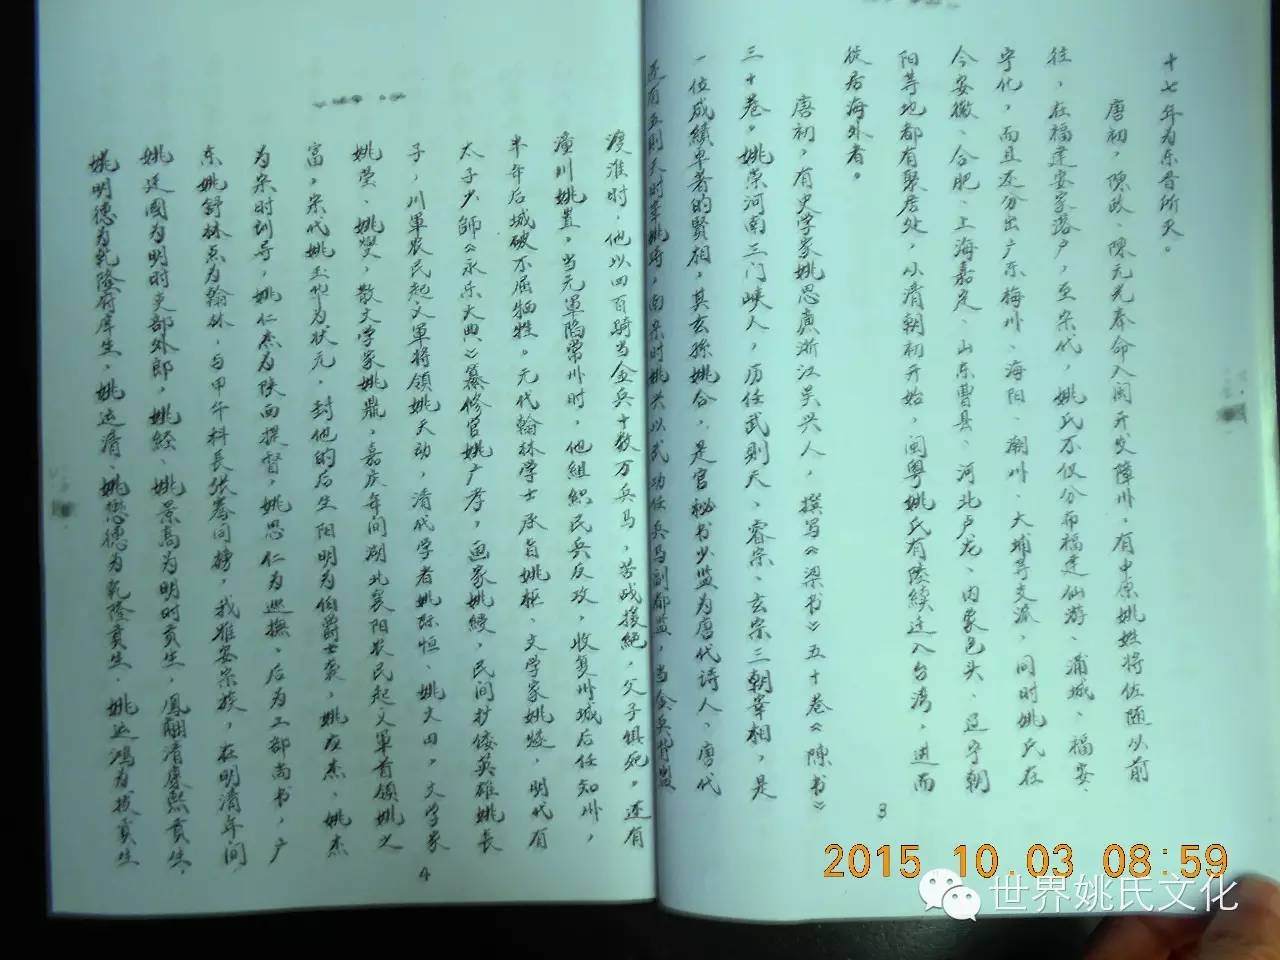 十七年为东晋所灭。
唐初，陳政、陳元光奉命入闽开发障州，有中原姚姓将佐随以前
往，在福建安家落户，至宋代，姚氏不仅分布福建仙游、浦城、福安、
宁化，而且还分出广东梅州、海阳、潮州、大埔等支流，同时姚氏在
今安徽、合肥、上海嘉定、山东曹县、河北卢龙、内蒙包头、辽宁朝
阳等地都有聚居处，从清朝初开始，闽粤姚氏有陸續迁入台湾，进而
徙居海外者。
唐初，有史学家姚思廉浙江吴兴人，撰写《梁书》五十卷《陳书》
三十卷。姚崇河南三门峡人，历任武则天、睿宗、玄宗三朝宰相，是
一位成績卓著的賢相，其玄孫姚合，是官秘书少监为唐代诗人，唐代
还有武则天时宰姚璹，南宋时姚兴以武功任兵马副都监，当金兵
渡淮时，他以四百騎当金兵十数万兵马，苦战援絕，父子俱死。还有
潼川姚訔，当元軍陷常州时，他組織民兵反攻，收复州城后任知州，
半年后城破不屈牺牲。元代翰林学士承旨姚枢、文学家姚燧，明代有
太子少師《永乐大典》纂修官姚广孝，画家姚綬，民间抄倭英雄姚長
子，川軍农民起义軍将领姚天动，清代学者姚际恒、姚文田，文学家
姚莹、姚燮，散文学家姚鼐，嘉庆年间湖北襄阳农民起义軍首領姚之
富，宋代姚 为状元，封他的后生阳明为伯爵士袭，姚应杰、姚杰
为宋时训导，姚仁杰为陕西提督，姚思仁为巡撫、后为工部尚书，广
东姚舒林点为翰林，与甲午科長张謇同榜，我雅安宗族，在明清年间
姚廷國为明时吏部外郎，姚經、姚景高为明时贡生，鳳翮清康熙貢生，
姚明德为乾隆府庠生，姚运清、姚懋德为乾隆貢生，姚运鴻为拔貢生
3
4
2015 10 03 08:59
世界姚氏文化